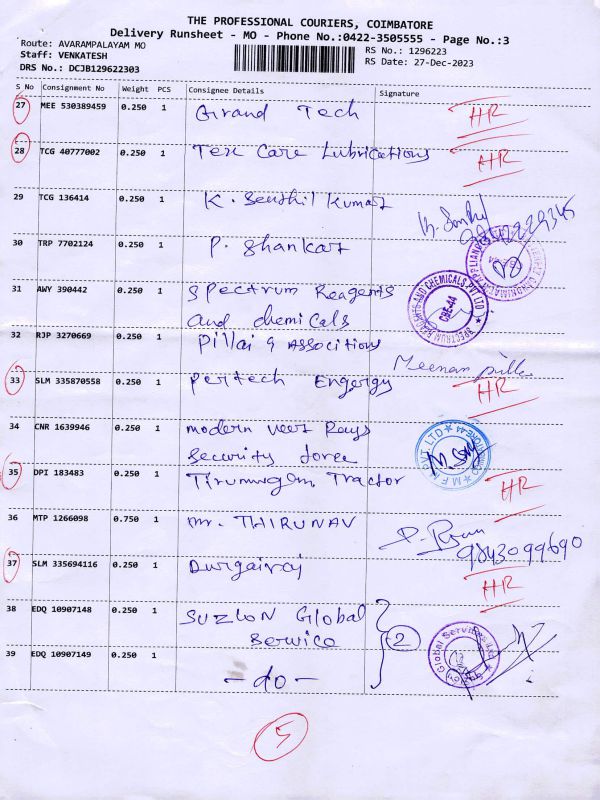 THE PROFESSIONAL COURIERS, COIMBATORE
Delivery Runsheet - MO - Phone No.:0422-3505555 - Page No.:3
Route: AVARAMPALAYAM MO
RS No.: 1296223
Staff: VENKATESH
RS Date: 27-Dec-2023
DRS No.: DCJB129622303
S No Consignment No Weight PCS Consignee Details Signature
27 MEE 530389459 0.250 1 Grand Tech HR
28 TCG 40777002 0.250 1 Tex Care Lubrications HR
29 TCG 136414 0.250 1 K. Senthil Kumar
30 TRP 7702124 0.250 1 P. Shankar
31 AWY 390442 0.250 1 Spectrum Reagents
and chemicals
SPECTRUM REAGENTS AND CHEMICALS PVT LTD CBE-44
32 RJP 3270669 0.250 1 Pillai & Associtions
33 SLM 335870558 0.250 1 Pertech Engergy HR
34 CNR 1639946 0.250 1 modern veer Rays
Security force
35 DPI 183483 0.250 1 Tirumugam Tractor HR
36 MTP 1266098 0.750 1 mr. THIRUNAV
9843099690
37 SLM 335694116 0.250 1 Durgairaj HR
38 EDQ 10907148 0.250 1 SUZLON Global
Service
2
39 EDQ 10907149 0.250 1 - do -
5